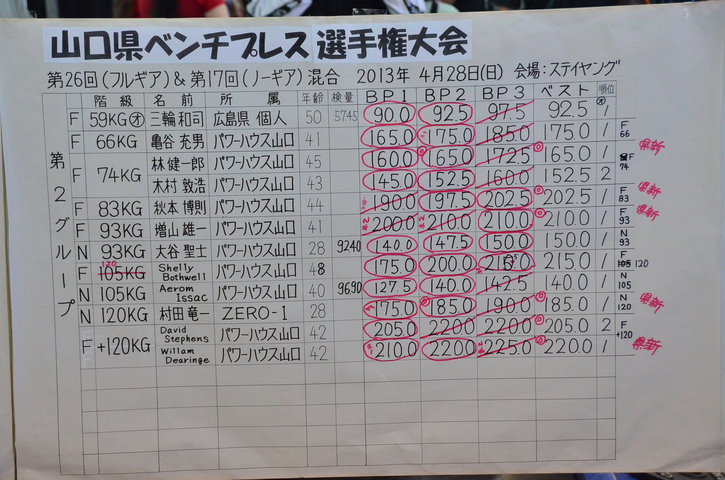 山口県ベンチプレス選手権大会
第26回(フルギア)&第17回(ノーギア)混合 2013年 4月28日(日) 会場:ステイヤング
階級 名前 所属 年齢 検量 BP1 BP2 BP3 ベスト 順位
第2グループ
F 59KG(オ) 三輪和司 広島県 個人 50 5745 90.0 92.5 97.5 92.5 1
F 66KG 亀谷充男 パワーハウス山口 41 165.0 175.0 185.0 175.0 1 F 66 県新
F 74KG 林健一郎 パワーハウス山口 45 160.0 165.0 172.5 165.0 1 F 74
木村敦浩 パワーハウス山口 43 145.0 152.5 160.0 152.5 2
F 83KG 秋本博則 パワーハウス山口 44 190.0 197.5 202.5 202.5 1 F 83 県新
F 93KG 増山雄一 パワーハウス山口 41 200.0 210.0 210.0 210.0 1 F 93 県新
N 93KG 大谷聖士 パワーハウス山口 28 9240 140.0 147.5 150.0 150.0 1 N 93
F 105KG 120 Shelly Bothwell パワーハウス山口 48 175.0 200.0 215.0 215.0 1 F 105 120
N 105KG Aerom Issac パワーハウス山口 40 9690 127.5 140.0 142.5 140.0 1 N 105
N 120KG 村田竜一 ZERO-1 28 175.0 185.0 190.0 185.0 1 N 120 県新
F +120KG David Stephens パワーハウス山口 42 205.0 220.0 220.0 205.0 2 F +120
Willam Dearinge パワーハウス山口 42 210.0 220.0 225.0 220.0 1 県新